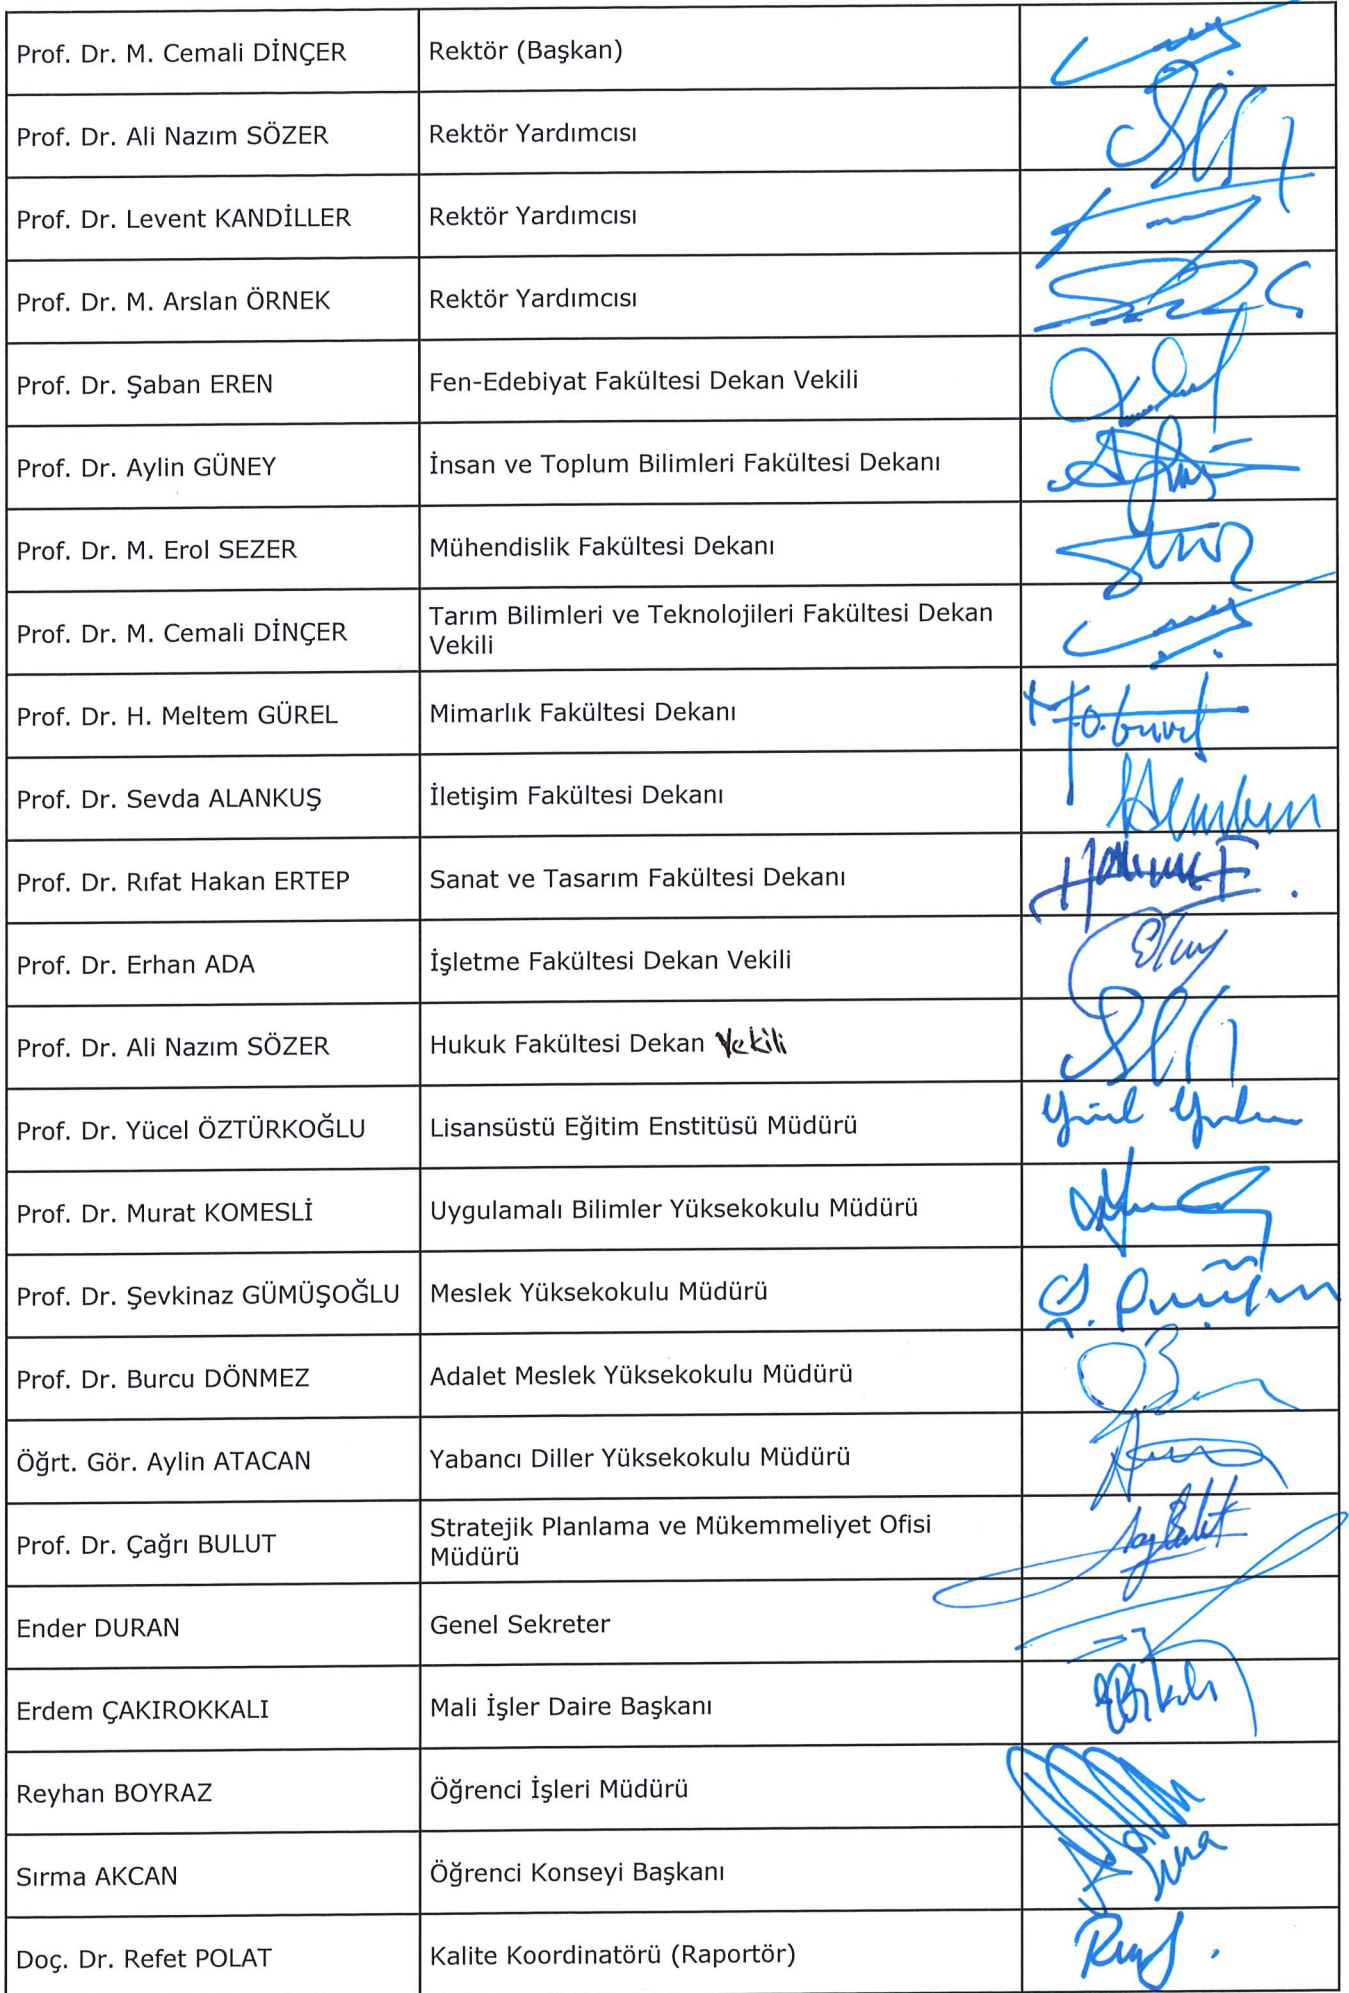 Prof. Dr. M. Cemali DİNÇER Rektör (Başkan)
Prof. Dr. Ali Nazım SÖZER Rektör Yardımcısı
Prof. Dr. Levent KANDİLLER Rektör Yardımcısı
Prof. Dr. M. Arslan ÖRNEK Rektör Yardımcısı
Prof. Dr. Şaban EREN Fen-Edebiyat Fakültesi Dekan Vekili
Prof. Dr. Aylin GÜNEY İnsan ve Toplum Bilimleri Fakültesi Dekanı
Prof. Dr. M. Erol SEZER Mühendislik Fakültesi Dekanı
Prof. Dr. M. Cemali DİNÇER Tarım Bilimleri ve Teknolojileri Fakültesi Dekan
Vekili
Prof. Dr. H. Meltem GÜREL Mimarlık Fakültesi Dekanı
Prof. Dr. Sevda ALANKUŞ İletişim Fakültesi Dekanı
Prof. Dr. Rıfat Hakan ERTEP Sanat ve Tasarım Fakültesi Dekanı
Prof. Dr. Erhan ADA İşletme Fakültesi Dekan Vekili
Prof. Dr. Ali Nazım SÖZER Hukuk Fakültesi Dekan Vekili
Prof. Dr. Yücel ÖZTÜRKOĞLU Lisansüstü Eğitim Enstitüsü Müdürü
Prof. Dr. Murat KOMESLİ Uygulamalı Bilimler Yüksekokulu Müdürü
Prof. Dr. Şevkinaz GÜMÜŞOĞLU Meslek Yüksekokulu Müdürü
Prof. Dr. Burcu DÖNMEZ Adalet Meslek Yüksekokulu Müdürü
Öğrt. Gör. Aylin ATACAN Yabancı Diller Yüksekokulu Müdürü
Prof. Dr. Çağrı BULUT Stratejik Planlama ve Mükemmeliyet Ofisi
Müdürü
Ender DURAN Genel Sekreter
Erdem ÇAKIROKKALI Mali İşler Daire Başkanı
Reyhan BOYRAZ Öğrenci İşleri Müdürü
Sırma AKCAN Öğrenci Konseyi Başkanı
Doç. Dr. Refet POLAT Kalite Koordinatörü (Raportör)